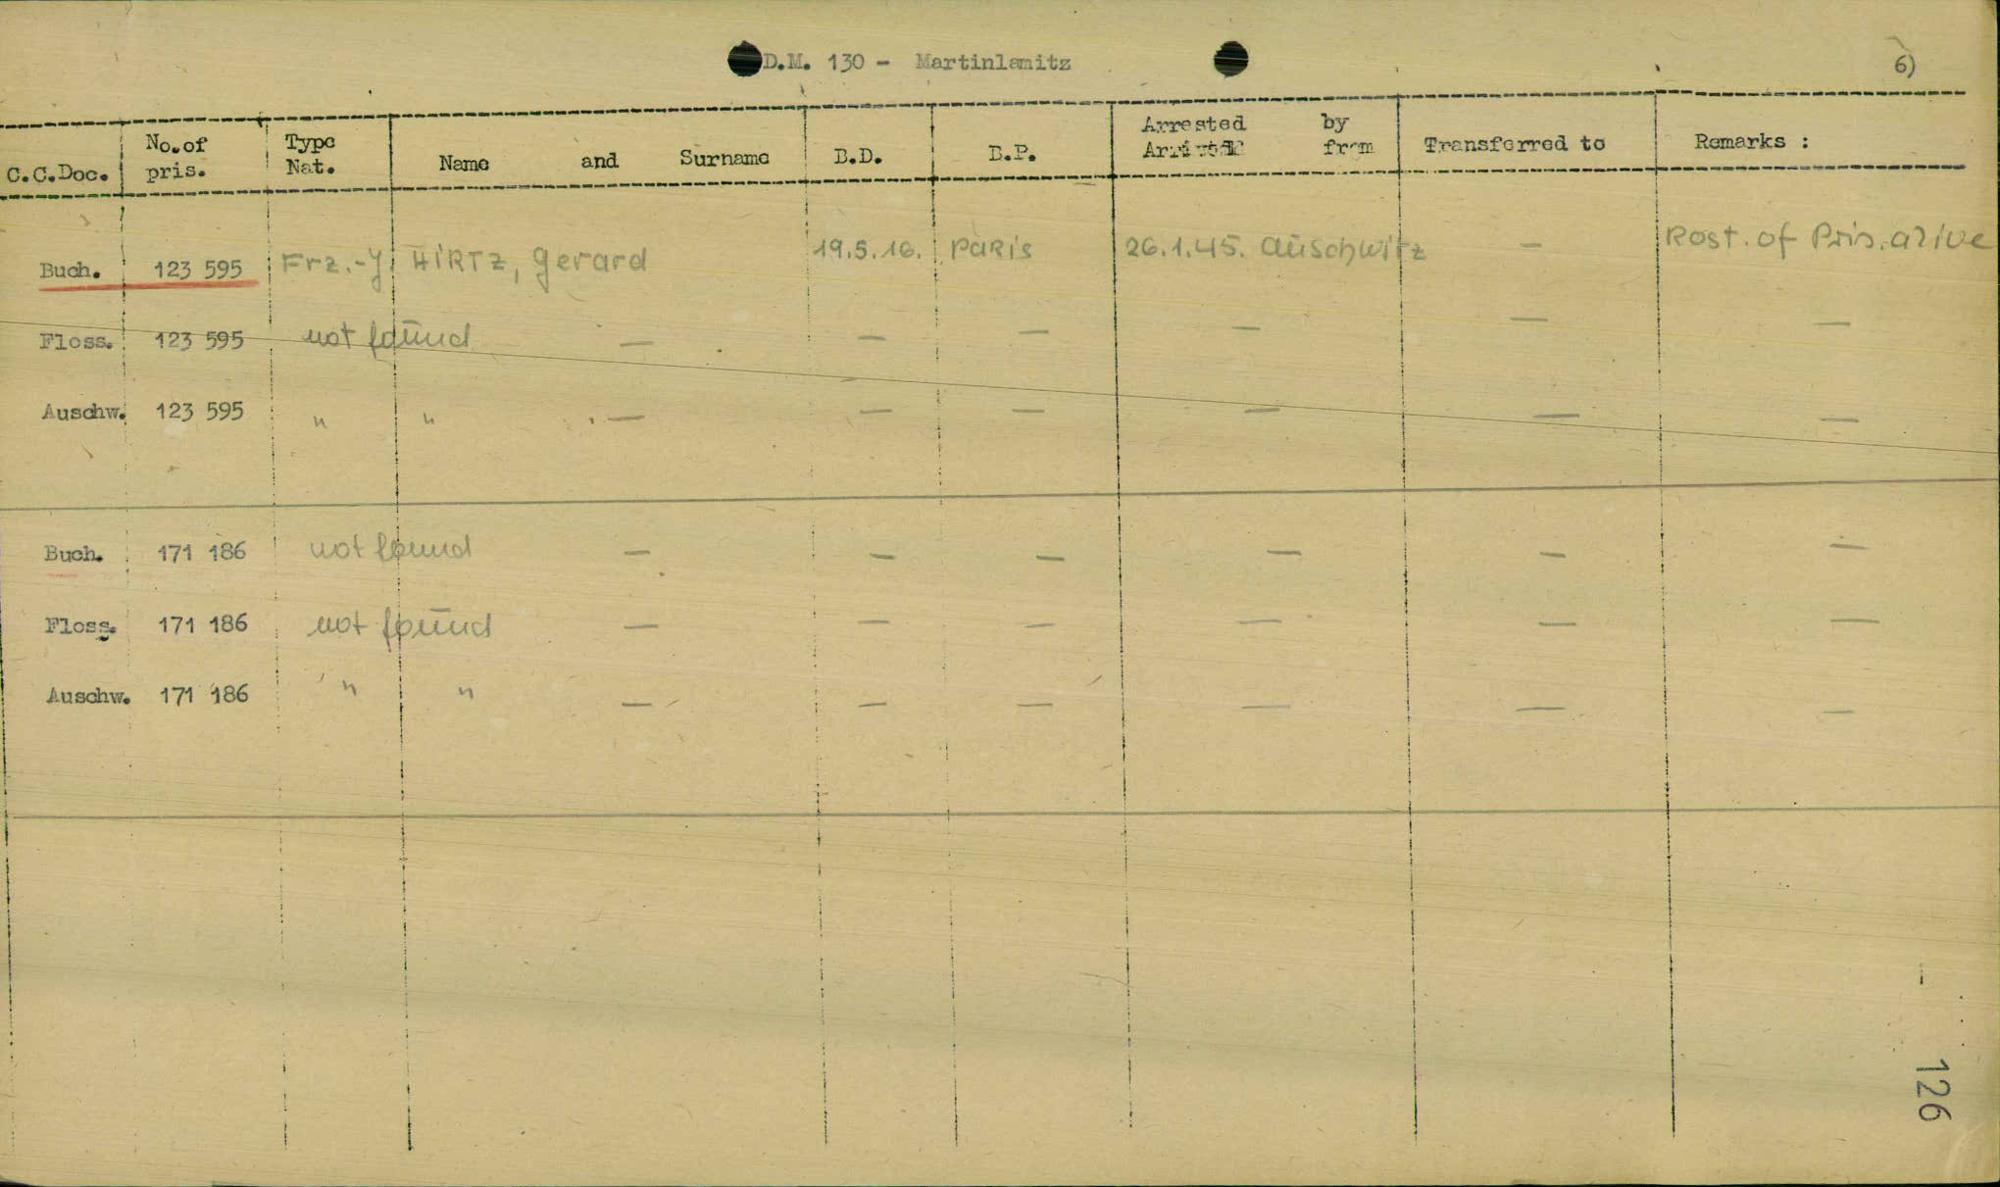 D.M. 130 - Martinlamitz
6)
C.C.Doc. No. of pris. Type Nat. Name and Surname B.D. B.P. Arrested by Arrived from Transferred to Remarks :
Buch. 123 595 Frz.-J. HIRTZ, Gerard 19.5.16. Paris 26.1.45. Auschwitz — Rost. of Pris. alive
Floss. 123 595 not found — — — — — —
Auschw. 123 595 " " — — — — — —
Buch. 171 186 not found — — — — — —
Floss. 171 186 not found — — — — — —
Auschw. 171 186 " " — — — — — —
126